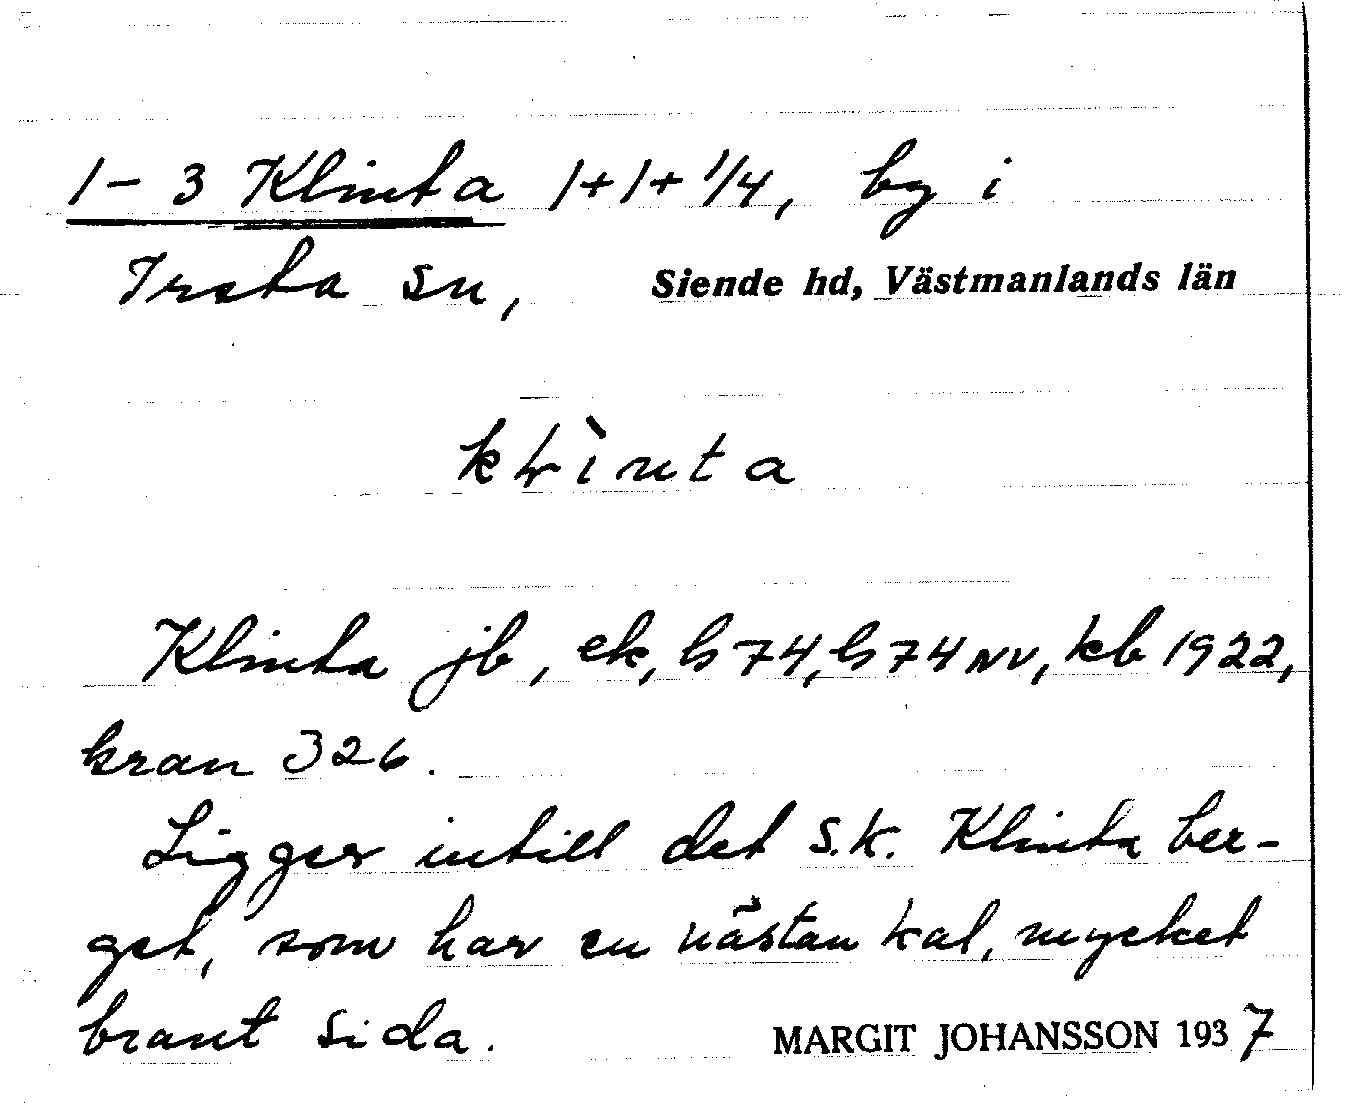 1-3 Klinta 1+1+1/4, by i
Irsta sn, Siende hd, Västmanlands län
klìnta
Klinta jb, ek, h 74, h 74 NV, kb 1922,
kran 326.
Ligger intill det s.k. Klinta ber-
get, som har en nästan kal, mycket
brant sida. MARGIT JOHANSSON 1937